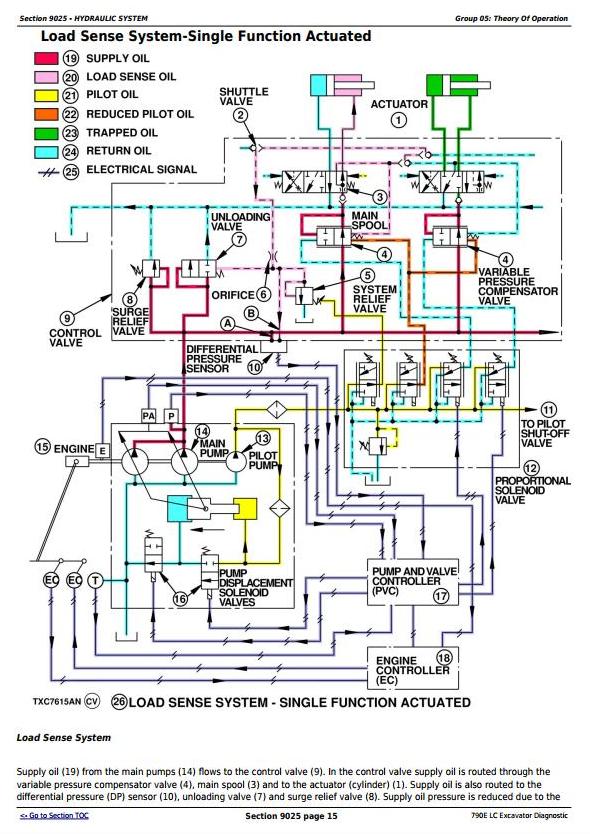 Section 9025 - HYDRAULIC SYSTEM
Group 05: Theory Of Operation
Load Sense System-Single Function Actuated
19 SUPPLY OIL
20 LOAD SENSE OIL
21 PILOT OIL
22 REDUCED PILOT OIL
23 TRAPPED OIL
24 RETURN OIL
25 ELECTRICAL SIGNAL
SHUTTLE
VALVE
2
ACTUATOR
1
3
MAIN
SPOOL
UNLOADING
VALVE
7
4
4
VARIABLE
PRESSURE
COMPENSATOR
VALVE
5
SYSTEM
RELIEF
VALVE
ORIFICE 6
8
SURGE
RELIEF
VALVE
9
CONTROL
VALVE
B
A
DIFFERENTIAL
PRESSURE
SENSOR
10
11
TO PILOT
SHUT-OFF
VALVE
12
PROPORTIONAL
SOLENOID
VALVE
PA
P
15 ENGINE
E
14
MAIN
PUMP
13
PILOT
PUMP
EC
EC
T
16
PUMP
DISPLACEMENT
SOLENOID
VALVES
PUMP AND VALVE
CONTROLLER
(PVC)
17
18
ENGINE
CONTROLLER
(EC)
TXC7615AN CV
26 LOAD SENSE SYSTEM - SINGLE FUNCTION ACTUATED
Load Sense System
Supply oil (19) from the main pumps (14) flows to the control valve (9). In the control valve supply oil is routed through the
variable pressure compensator valve (4), main spool (3) and to the actuator (cylinder) (1). Supply oil is also routed to the
differential pressure (DP) sensor (10), unloading valve (7) and surge relief valve (8). Supply oil pressure is reduced due to the
<- Go to Section TOC
Section 9025 page 15
790E LC Excavator Diagnostic